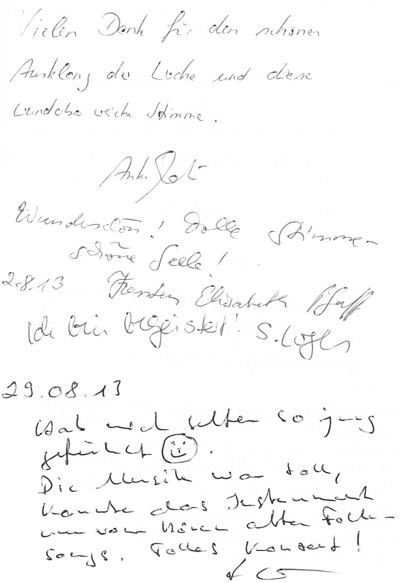 Vielen Dank für den schönen
Ausklang der Woche und diese
wunderbar weiche Stimme.
Wunderschön! Tolle Stimme –
schöne Seele!
2.8.13 Elisabeth
Ich bin begeistert! S.
29.08.13
Hab mich selten so jung
gefühlt ☺.
Die Musik war toll,
kannte das Instrument
nur vom Hören alter Folk-
songs. Tolles Konzert!